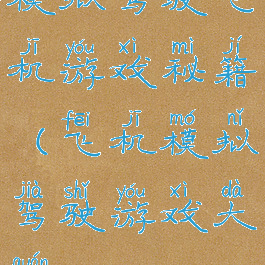 模拟驾驶飞
jī yóu xì mì jí
机游戏秘籍
fēi jī mó nǐ
(飞机模拟
jià shǐ yóu xì dà
驾驶游戏大
quán